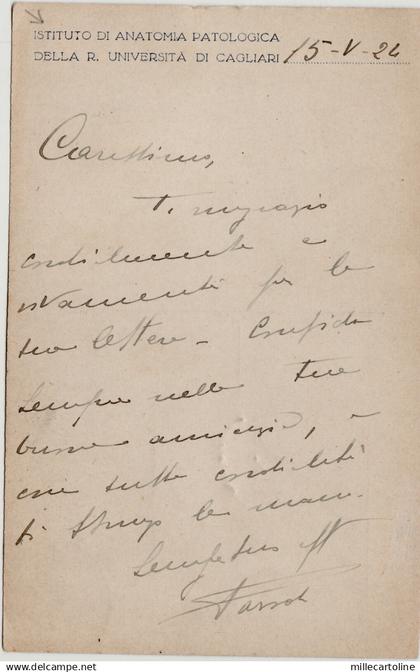 ISTITUTO DI ANATOMIA PATOLOGICA
DELLA R. UNIVERSITÀ DI CAGLIARI 15-V-24
Carissimo,
Ti ringrazio
cordialmente e
vivamente per la
tua lettera – Confido
sempre nella tua
buona amicizia, e
con tutta cordialità
ti stringo la mano.
Sempre tuo aff
millecartoline
Delcampe.net
millecartoline.com